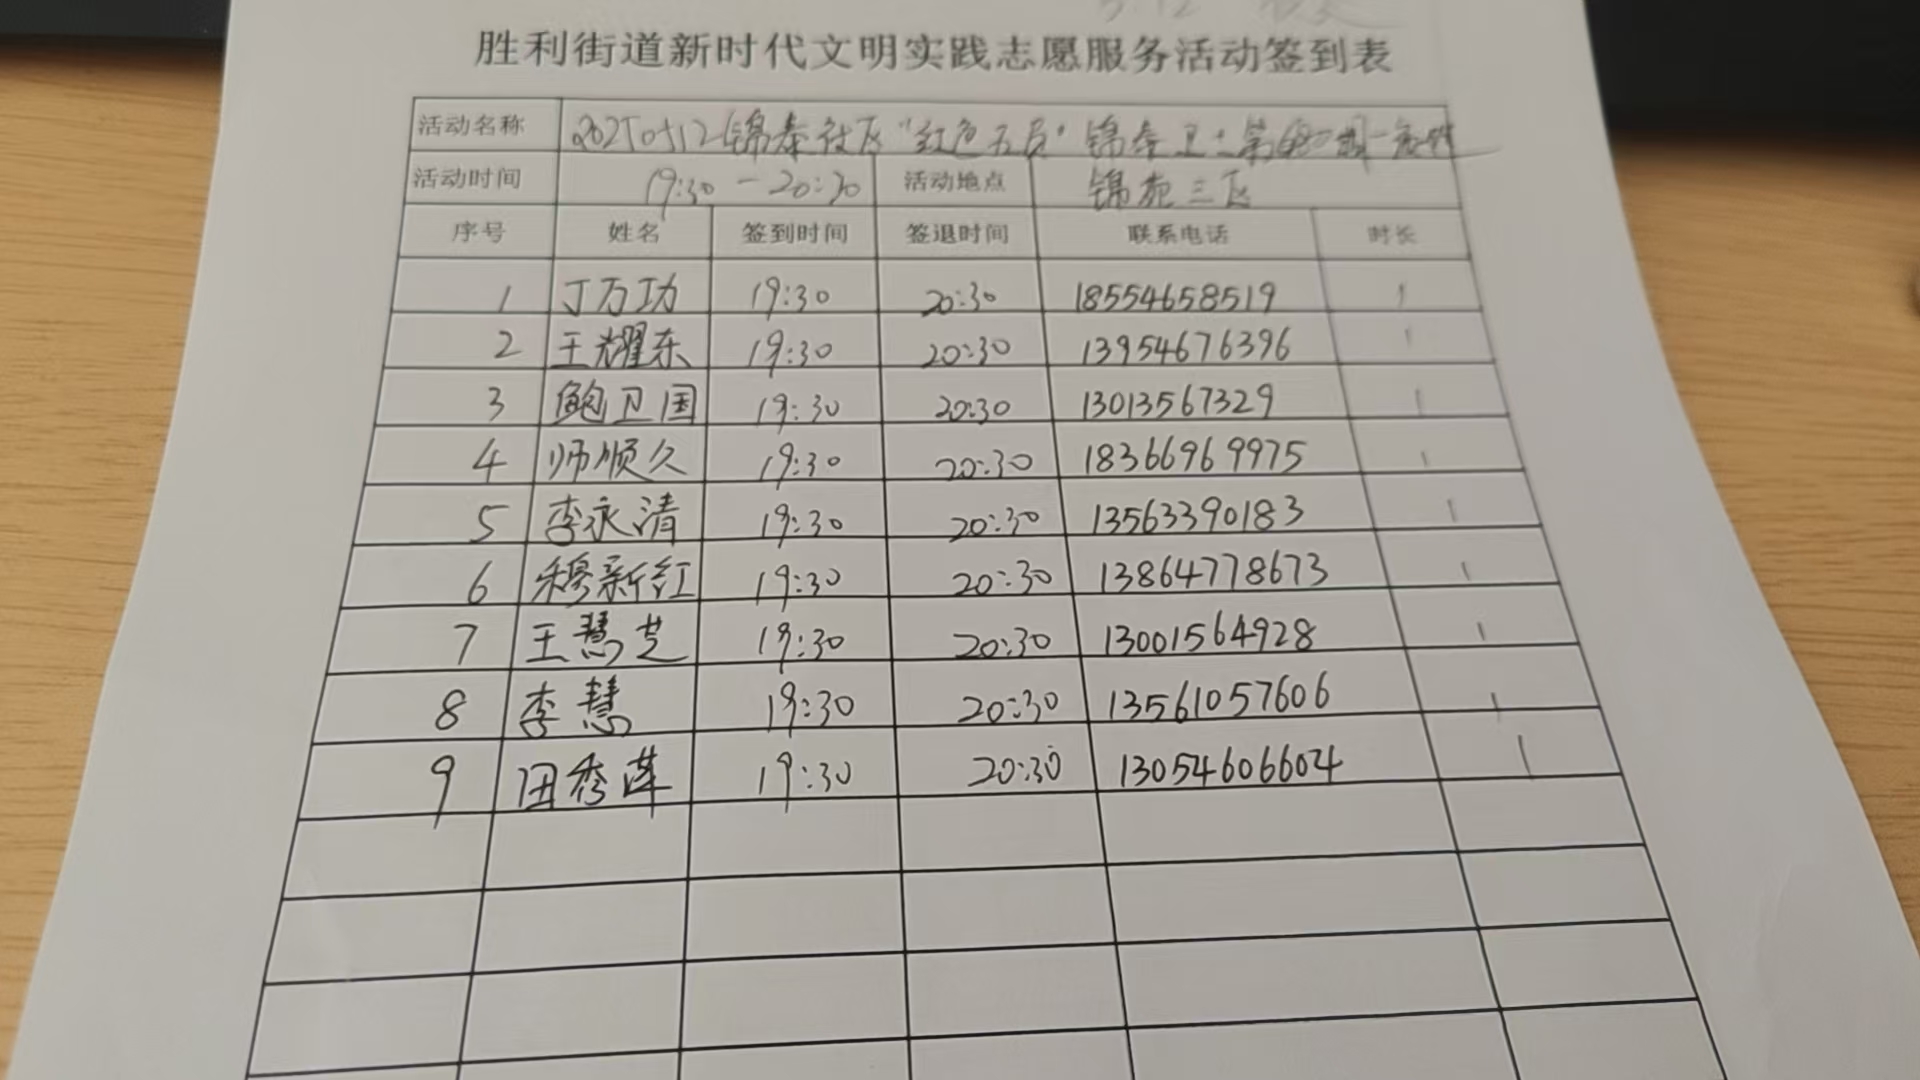 胜利街道新时代文明实践志愿服务活动签到表
活动名称 20250512锦泰社区“红色五员”锦泰卫士第
活动时间 19:30-20:30 活动地点 锦苑三区
序号 姓名 签到时间 签退时间 联系电话 时长
1 丁万功 19:30 20:30 18554658519 1
2 王耀东 19:30 20:30 13954676396 1
3 鲍卫国 19:30 20:30 13013567329 1
4 师顺久 19:30 20:30 18366969975 1
5 李永清 19:30 20:30 13563390183 1
6 穆新红 19:30 20:30 13864778673 1
7 王慧芝 19:30 20:30 13001564928 1
8 李慧 19:30 20:30 13561057606 1
9 田秀莲 19:30 20:30 13054606604 1